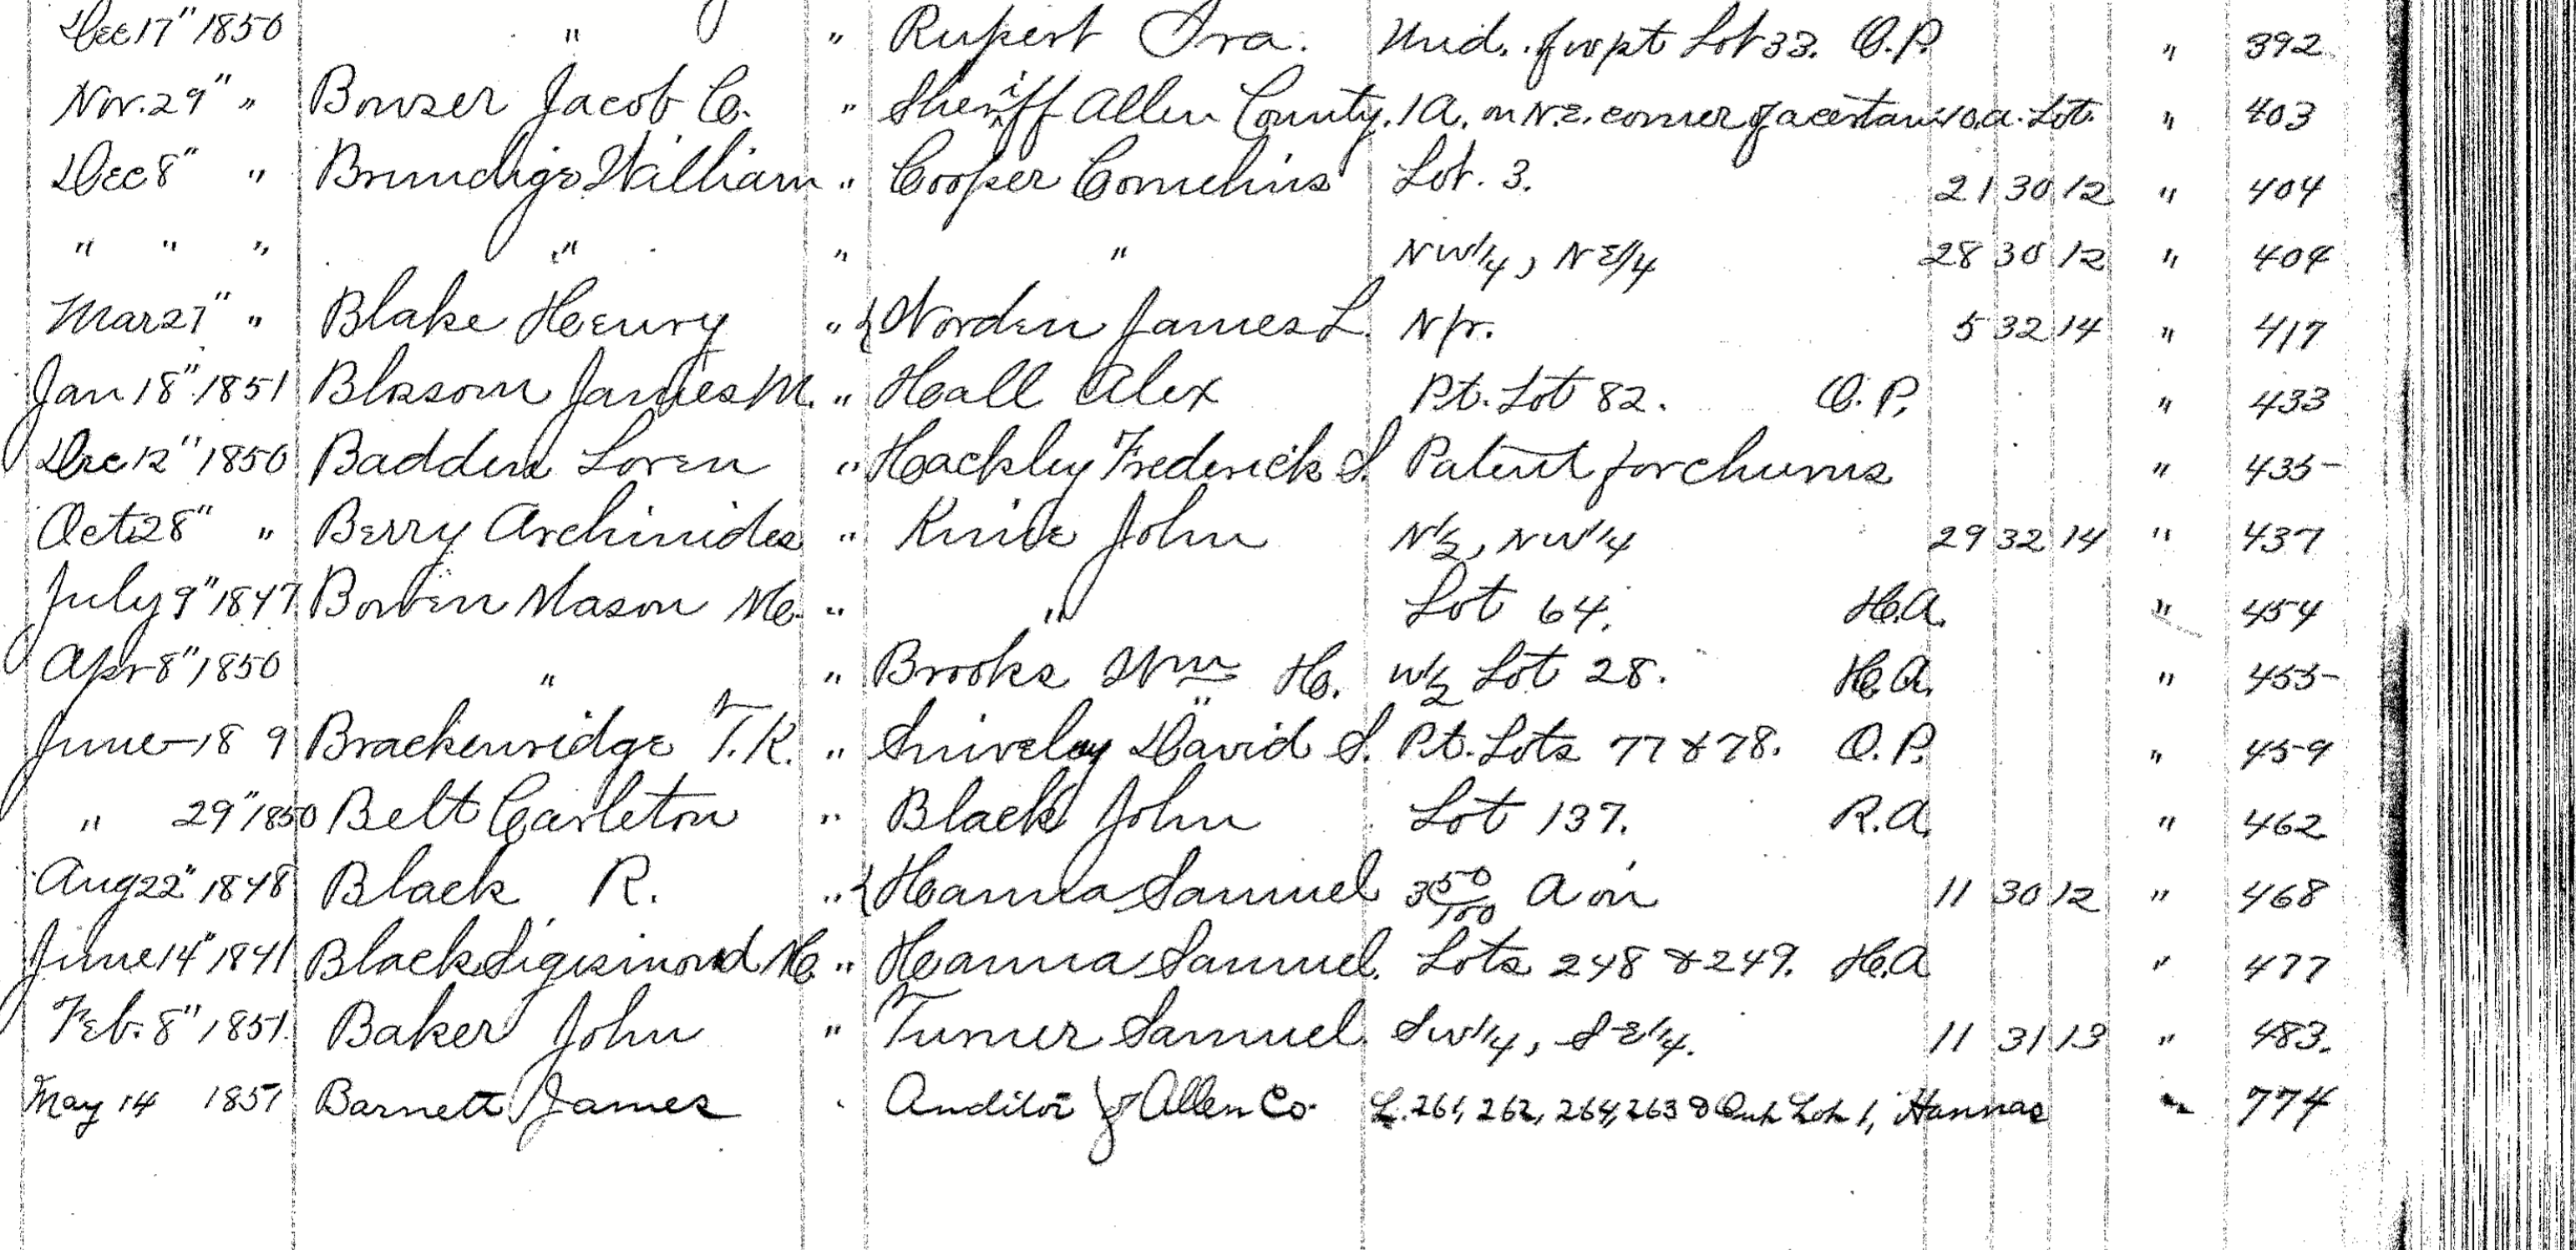 Dec 17" 1850 " " Rupert Ira. Und. . f w pt Lot 33. O.P. " 392
Nov. 29" " Bowser Jacob C. " Sheriff Allen County. 1 A. on N.E. corner of a certain 40 a. Lot. " 403
Dec 8" " Brundige William " Cooper Cornelius Lot. 3. 21 30 12 " 404
" " " " " " NW 1/4, NE 1/4 28 30 12 " 404
Mar 27" " Blake Henry " { Worden James L. N fr. 5 32 14 " 417
Jan 18" 1851 Blossom James M. " Hall Alex Pt. Lot 82. O.P. " 433
Dec 12" 1850 Badden Loren " Hackley Frederick S. Patent for churns " 435-
Oct. 28" " Berry Archimides " John N 1/2, NW 1/4 29 32 14 " 437
July 9" 1847 Bowen Mason M. " " Lot 64. H.A. " 454
Apr 8" 1850 " " Brooks Wm H. W 1/2 Lot 28. H.A. " 455-
June - 18 9 Brackenridge T.K. " Shiveley David S. Pt. Lots 77 & 78. O.P. " 459
" 29" 1850 Belt Carleton " Black John Lot 137. R.A. " 462
Aug 22" 1848 Black R. " { Hanna Samuel 3 50/100 A in 11 30 12 " 468
June 14" 1841 Black Sigismond H. " Hanna Samuel. Lots 248 & 249. H.A " 477
Feb. 8" 1851. Baker John " Turner Samuel. SW 1/4, SE 1/4. 11 31 13 " 483.
May 14 1851 Barnett James " Auditor of Allen Co. L. 261, 262, 264, 263 & Out Lot 1, Hannas " 774